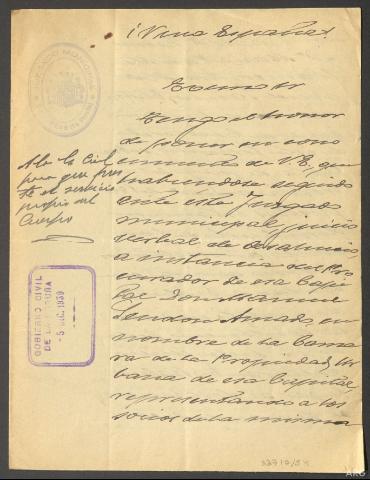 ¡Viva España!
Excmo Sr
Tengo el honor
de poner en cono
cimiento de V.E. que
habiendose seguido
ante este Juzgado
municipal, juicio
verbal de desahucio,
a instancia del Pro
curador de esa Capi
tal Don Manuel
Sendon Amado, en
nombre de la Cama
ra de la Propiedad Ur
bana de esa Capital,
representando a los
socios de la misma
A la G. Civil
para que pres
te el servicio
propio del
Cuerpo
JUZGADO MUNICIPAL
GOBIERNO CIVIL
DE LA CORUÑA
-5 DIC. 1939